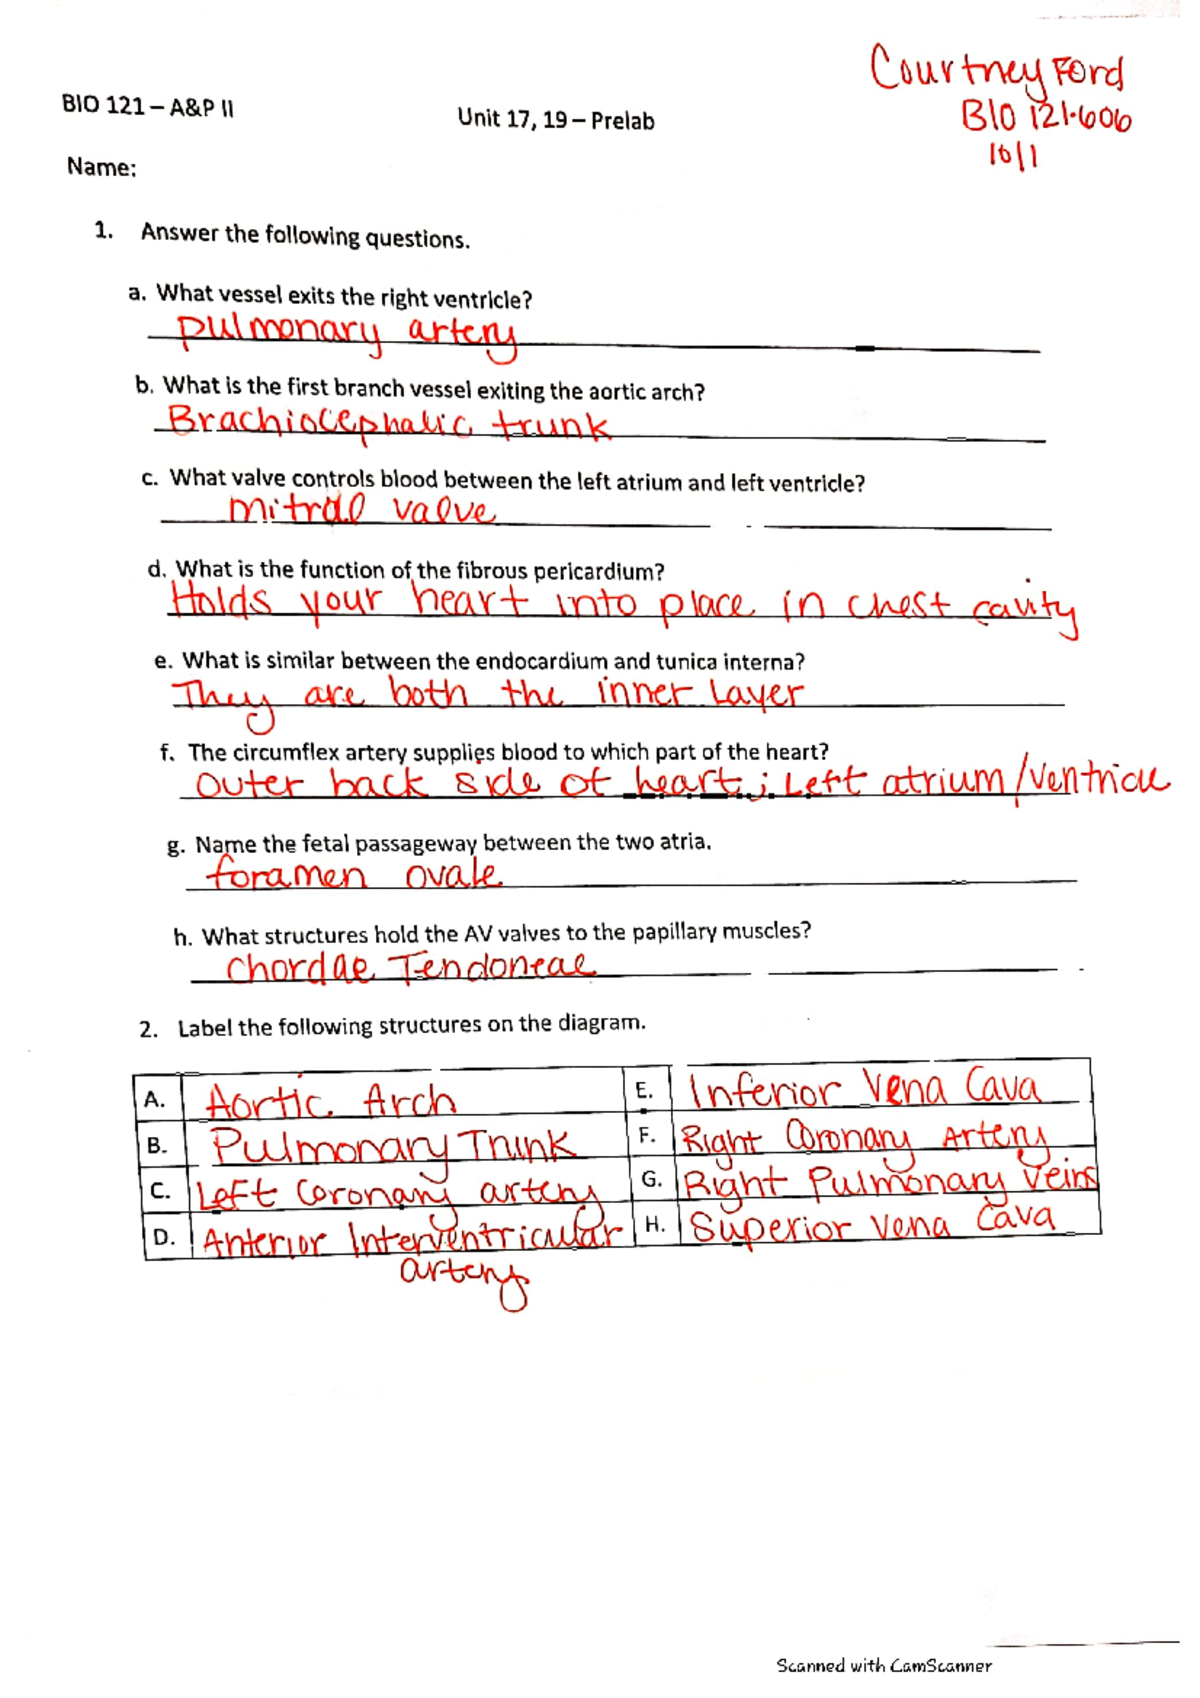 Courtney Ford
BIO 121 – A&P II
Unit 17, 19 – Prelab
BIO 121-606
10/1
Name:
1. Answer the following questions.
a. What vessel exits the right ventricle?
pulmonary artery
b. What is the first branch vessel exiting the aortic arch?
Brachiocephalic trunk
c. What valve controls blood between the left atrium and left ventricle?
mitral valve
d. What is the function of the fibrous pericardium?
Holds your heart into place in chest cavity
e. What is similar between the endocardium and tunica interna?
They are both the inner layer
f. The circumflex artery supplies blood to which part of the heart?
outer back side of heart ; Left atrium/ventricle
g. Name the fetal passageway between the two atria.
foramen ovale
h. What structures hold the AV valves to the papillary muscles?
Chordae Tendoneae
2. Label the following structures on the diagram.
A. Aortic Arch E. Inferior Vena Cava
B. Pulmonary Trunk F. Right Coronary Artery
C. Left Coronary artery G. Right Pulmonary Veins
D. Anterior Interventricular H. Superior Vena Cava
artery
Scanned with CamScanner